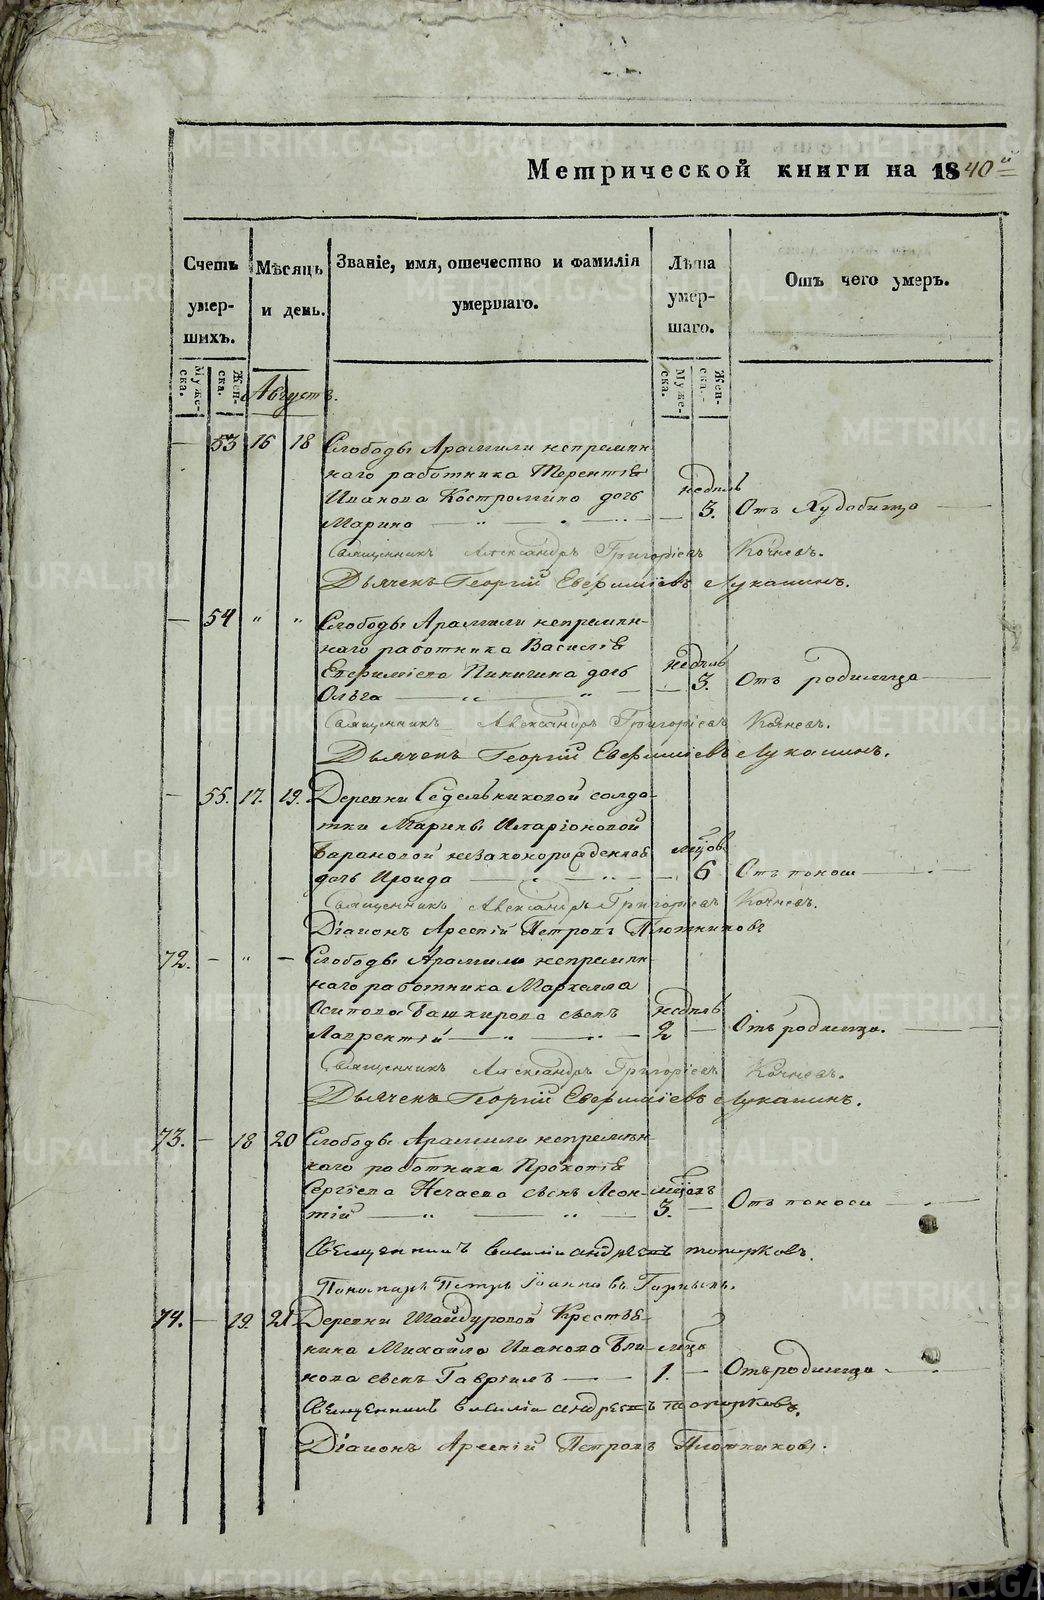 Метрической книги на 1840й
Счетъ умершихъ.
Мѣсяцъ и день.
Званіе, имя, отечество и фамилія умершаго.
Лѣта умершаго.
Отъ чего умеръ.
Мужеска.
Женска.
Мужеска.
Женска.
Августъ.
— 53 16 18 Слободы Арамили непремѣн-
наго работника Терентія
Иванова Костромина дочь недѣль
Марина — 3. Отъ Худобища
Священникъ Александръ Григоріевъ Кочневъ.
Дьячекъ Георгій Евфиміевъ Лукашинъ.
— 54 " " Слободы Арамили непремѣн-
наго работника Василія
Евфиміева Пиничина дочь недѣль
Ольга — 3. Отъ родимца
Священникъ Александръ Григоріевъ Кочневъ.
Дьячекъ Георгій Евфиміевъ Лукашинъ.
— 55. 17. 19. Деревни Седельниковой солда-
тки Марины Иларіоновой
Барановой незаконорожденная
дочь Ироида — 6 Отъ поноса
Священникъ Александръ Григоріевъ Кочневъ.
Діаконъ Арсеній Петровъ Плотниковъ
72. — " — Слободы Арамили непремѣн-
наго работника Маркелла
Осипова Башкирова сынъ недѣль
Лаврентій — 2 — Отъ родимца.
Священникъ Александръ Григоріевъ Кочневъ.
Дьячекъ Георгій Евфиміевъ Лукашинъ.
73. — 18 20 Слободы Арамили непремѣн-
наго работника Прокопія
Сергіева Нечаева сынъ Леон-
тій — 3. — Отъ поноса
Священникъ Василій Андреевъ Топорковъ.
Пономарь Петръ Іоанновъ
74. — 19. 21 Деревни Шайдуровой Крестья-
нина Михайла Иванова Бли-
нова сынъ Гавріилъ — 1. — Отъ родимца
Священникъ Василій Андреевъ Топорковъ.
Діаконъ Арсеній Петровъ Плотниковъ.